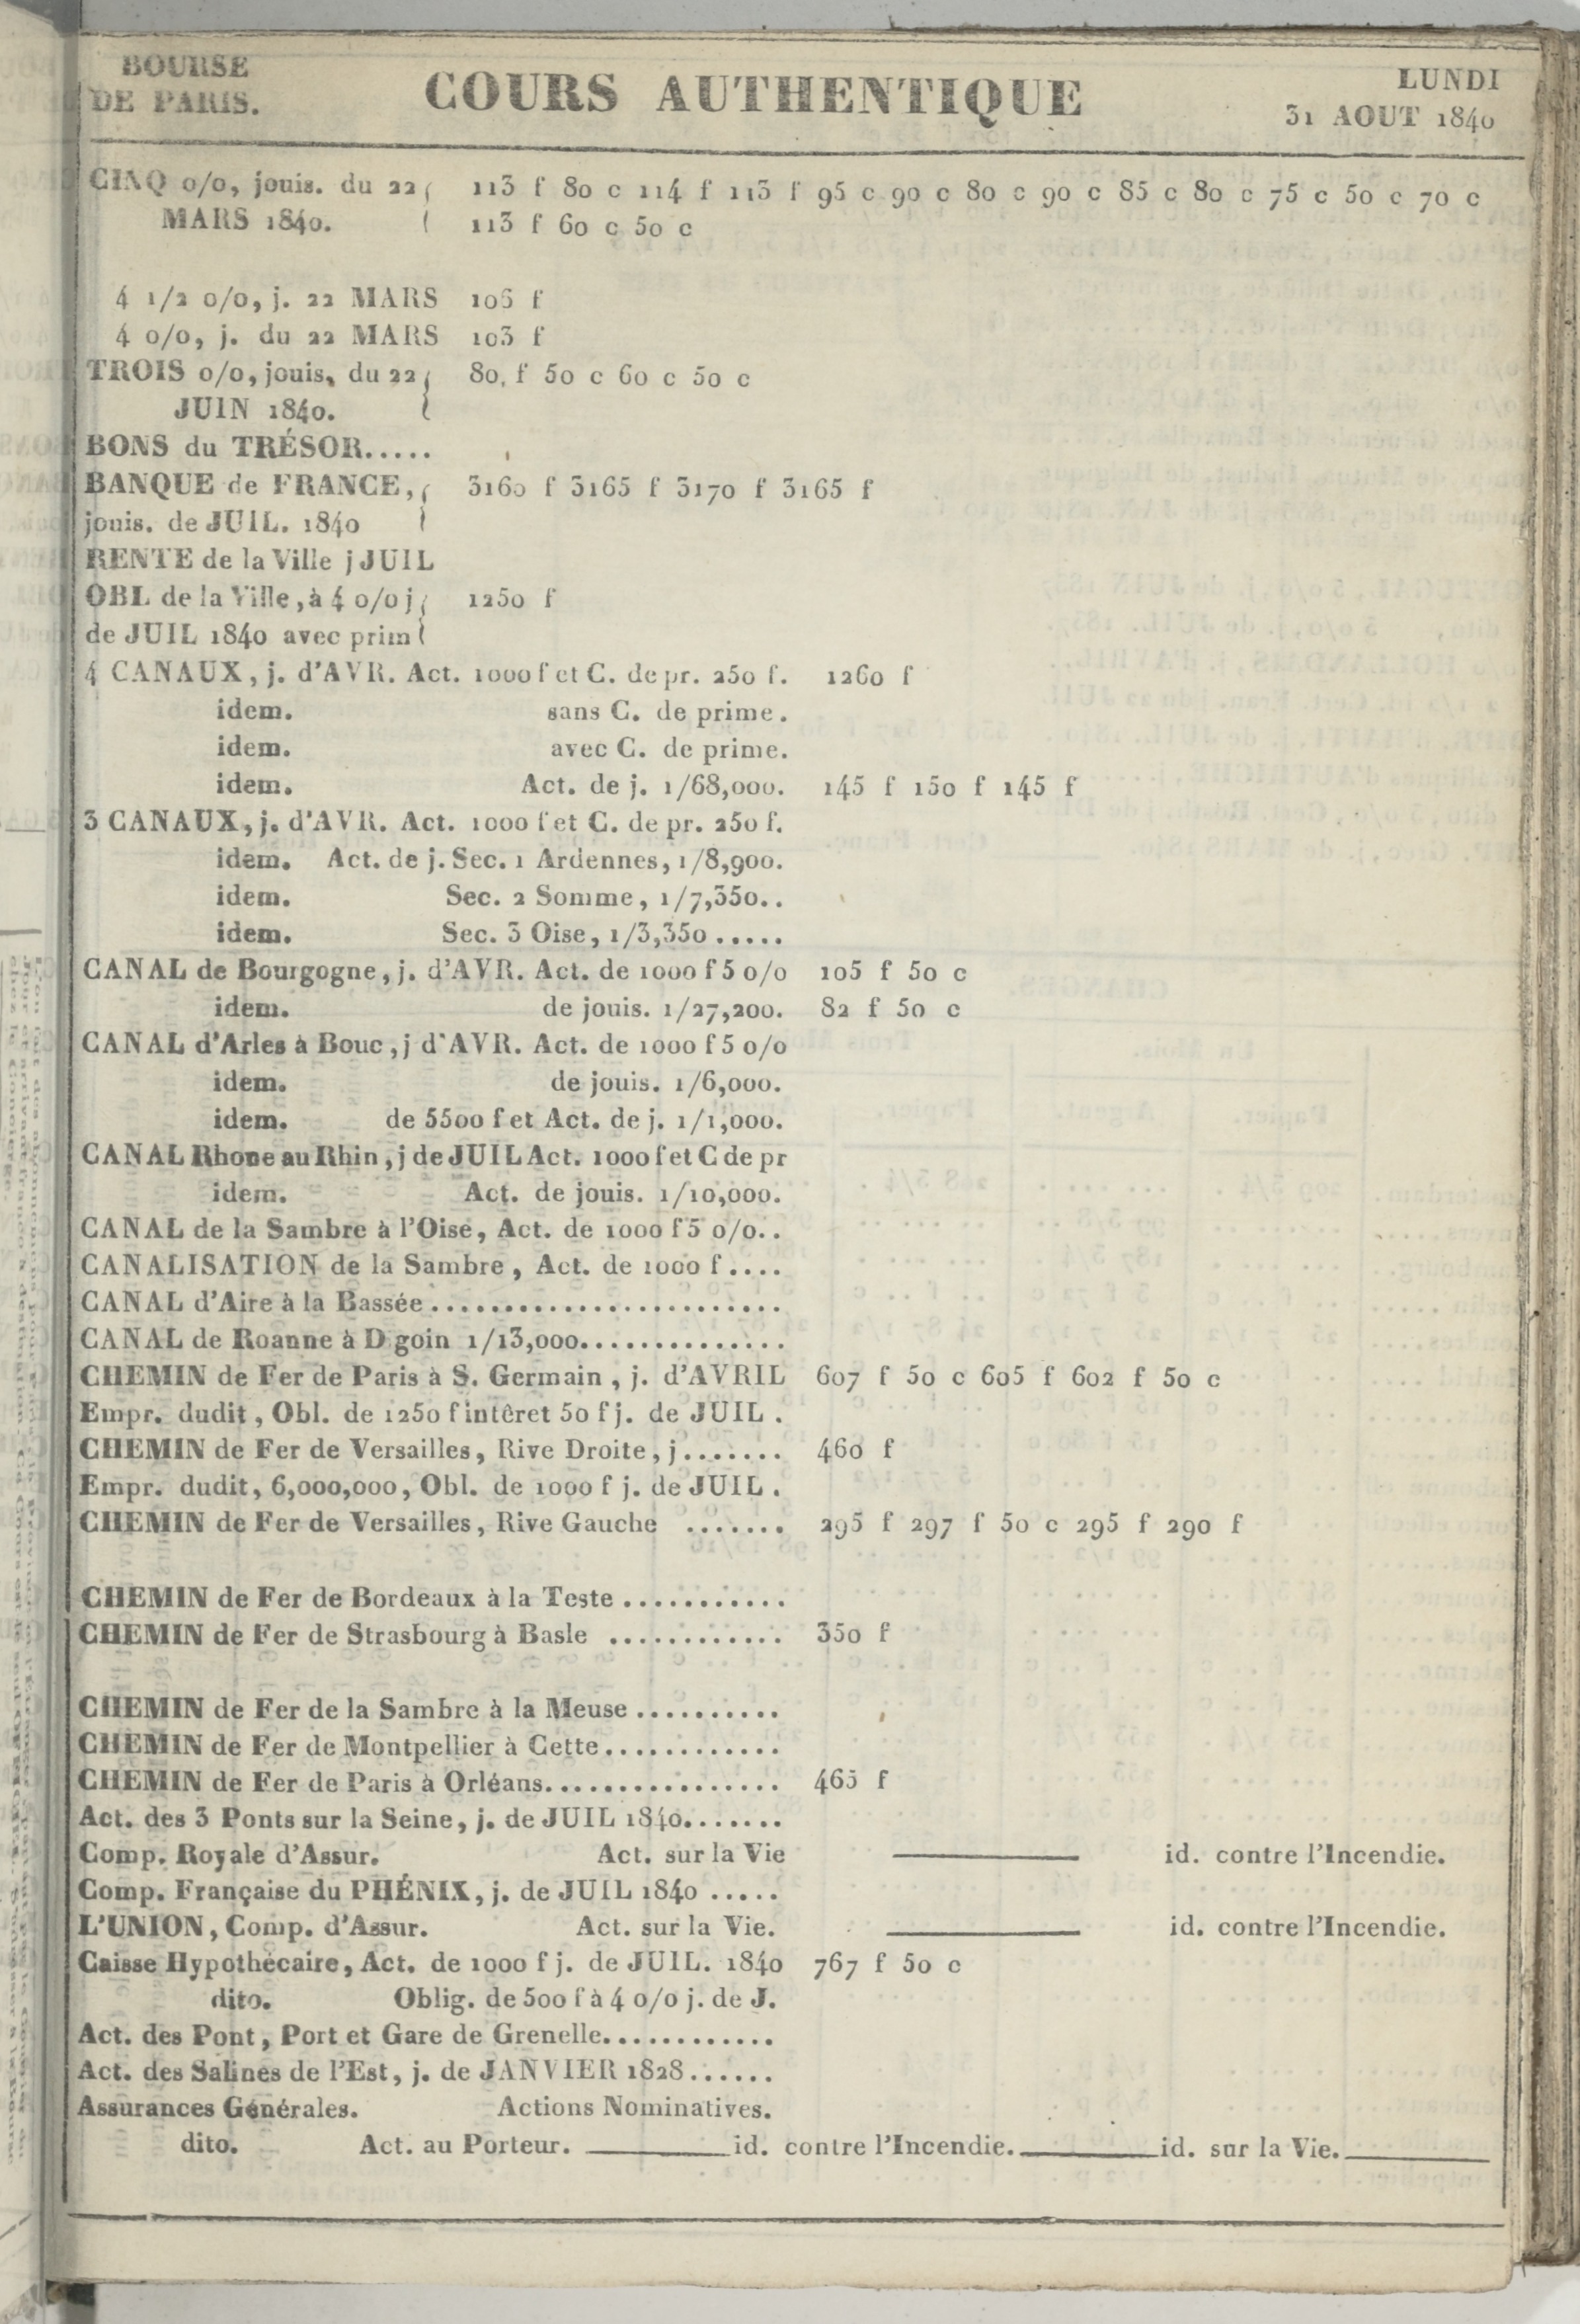 BOURSE
DE PARIS.
COURS AUTHENTIQUE
LUNDI
31 AOUT 1840
CINQ o/o, jouis. du 22 113 f 80 c 114 f 113 f 95 c 90 c 80 c 90 c 85 c 80 c 75 c 50 c 70 c
MARS 1840. 113 f 60 c 50 c
4 1/2 o/o, j. 22 MARS 105 f
4 o/o, j. du 22 MARS 103 f
TROIS o/o, jouis, du 22 80, f 50 c 60 c 50 c
JUIN 1840.
BONS du TRÉSOR.....
BANQUE de FRANCE, 3160 f 3165 f 3170 f 3165 f
jouis. de JUIL. 1840
RENTE de la Ville j JUIL
OBL de la Ville, à 4 o/o j 1250 f
de JUIL 1840 avec prim
4 CANAUX, j. d'AVR. Act. 1000 f et C. de pr. 250 f. 1260 f
idem. sans C. de prime.
idem. avec C. de prime.
idem. Act. de j. 1/68,000. 145 f 150 f 145 f
3 CANAUX, j. d'AVR. Act. 1000 f et C. de pr. 250 f.
idem. Act. de j. Sec. 1 Ardennes, 1/8,900.
idem. Sec. 2 Somme, 1/7,350..
idem. Sec. 3 Oise, 1/3,350.....
CANAL de Bourgogne, j. d'AVR. Act. de 1000 f 5 o/o 105 f 50 c
idem. de jouis. 1/27,200. 82 f 50 c
CANAL d'Arles à Bouc, j d'AVR. Act. de 1000 f 5 o/o
idem. de jouis. 1/6,000.
idem. de 5500 f et Act. de j. 1/1,000.
CANAL Rhone au Rhin, j de JUIL Act. 1000 f et C de pr
idem. Act. de jouis. 1/10,000.
CANAL de la Sambre à l'Oise, Act. de 1000 f 5 o/o..
CANALISATION de la Sambre, Act. de 1000 f....
CANAL d'Aire à la Bassée........................
CANAL de Roanne à D goin 1/13,000..............
CHEMIN de Fer de Paris à S. Germain, j. d'AVRIL 607 f 50 c 605 f 602 f 50 c
Empr. dudit, Obl. de 1250 f intêret 50 f j. de JUIL.
CHEMIN de Fer de Versailles, Rive Droite, j....... 460 f
Empr. dudit, 6,000,000, Obl. de 1000 f j. de JUIL.
CHEMIN de Fer de Versailles, Rive Gauche ....... 295 f 297 f 50 c 295 f 290 f
CHEMIN de Fer de Bordeaux à la Teste...........
CHEMIN de Fer de Strasbourg à Basle ............ 350 f
CHEMIN de Fer de la Sambre à la Meuse..........
CHEMIN de Fer de Montpellier à Cette............
CHEMIN de Fer de Paris à Orléans................ 465 f
Act. des 3 Ponts sur la Seine, j. de JUIL 1840.......
Comp. Royale d'Assur. Act. sur la Vie id. contre l'Incendie.
Comp. Française du PHÉNIX, j. de JUIL 1840 .....
L'UNION, Comp. d'Assur. Act. sur la Vie. id. contre l'Incendie.
Caisse Hypothécaire, Act. de 1000 f j. de JUIL. 1840 767 f 50 c
dito. Oblig. de 500 f à 4 o/o j. de J.
Act. des Pont, Port et Gare de Grenelle............
Act. des Salines de l'Est, j. de JANVIER 1828......
Assurances Générales. Actions Nominatives.
dito. Act. au Porteur. id. contre l'Incendie. id. sur la Vie.